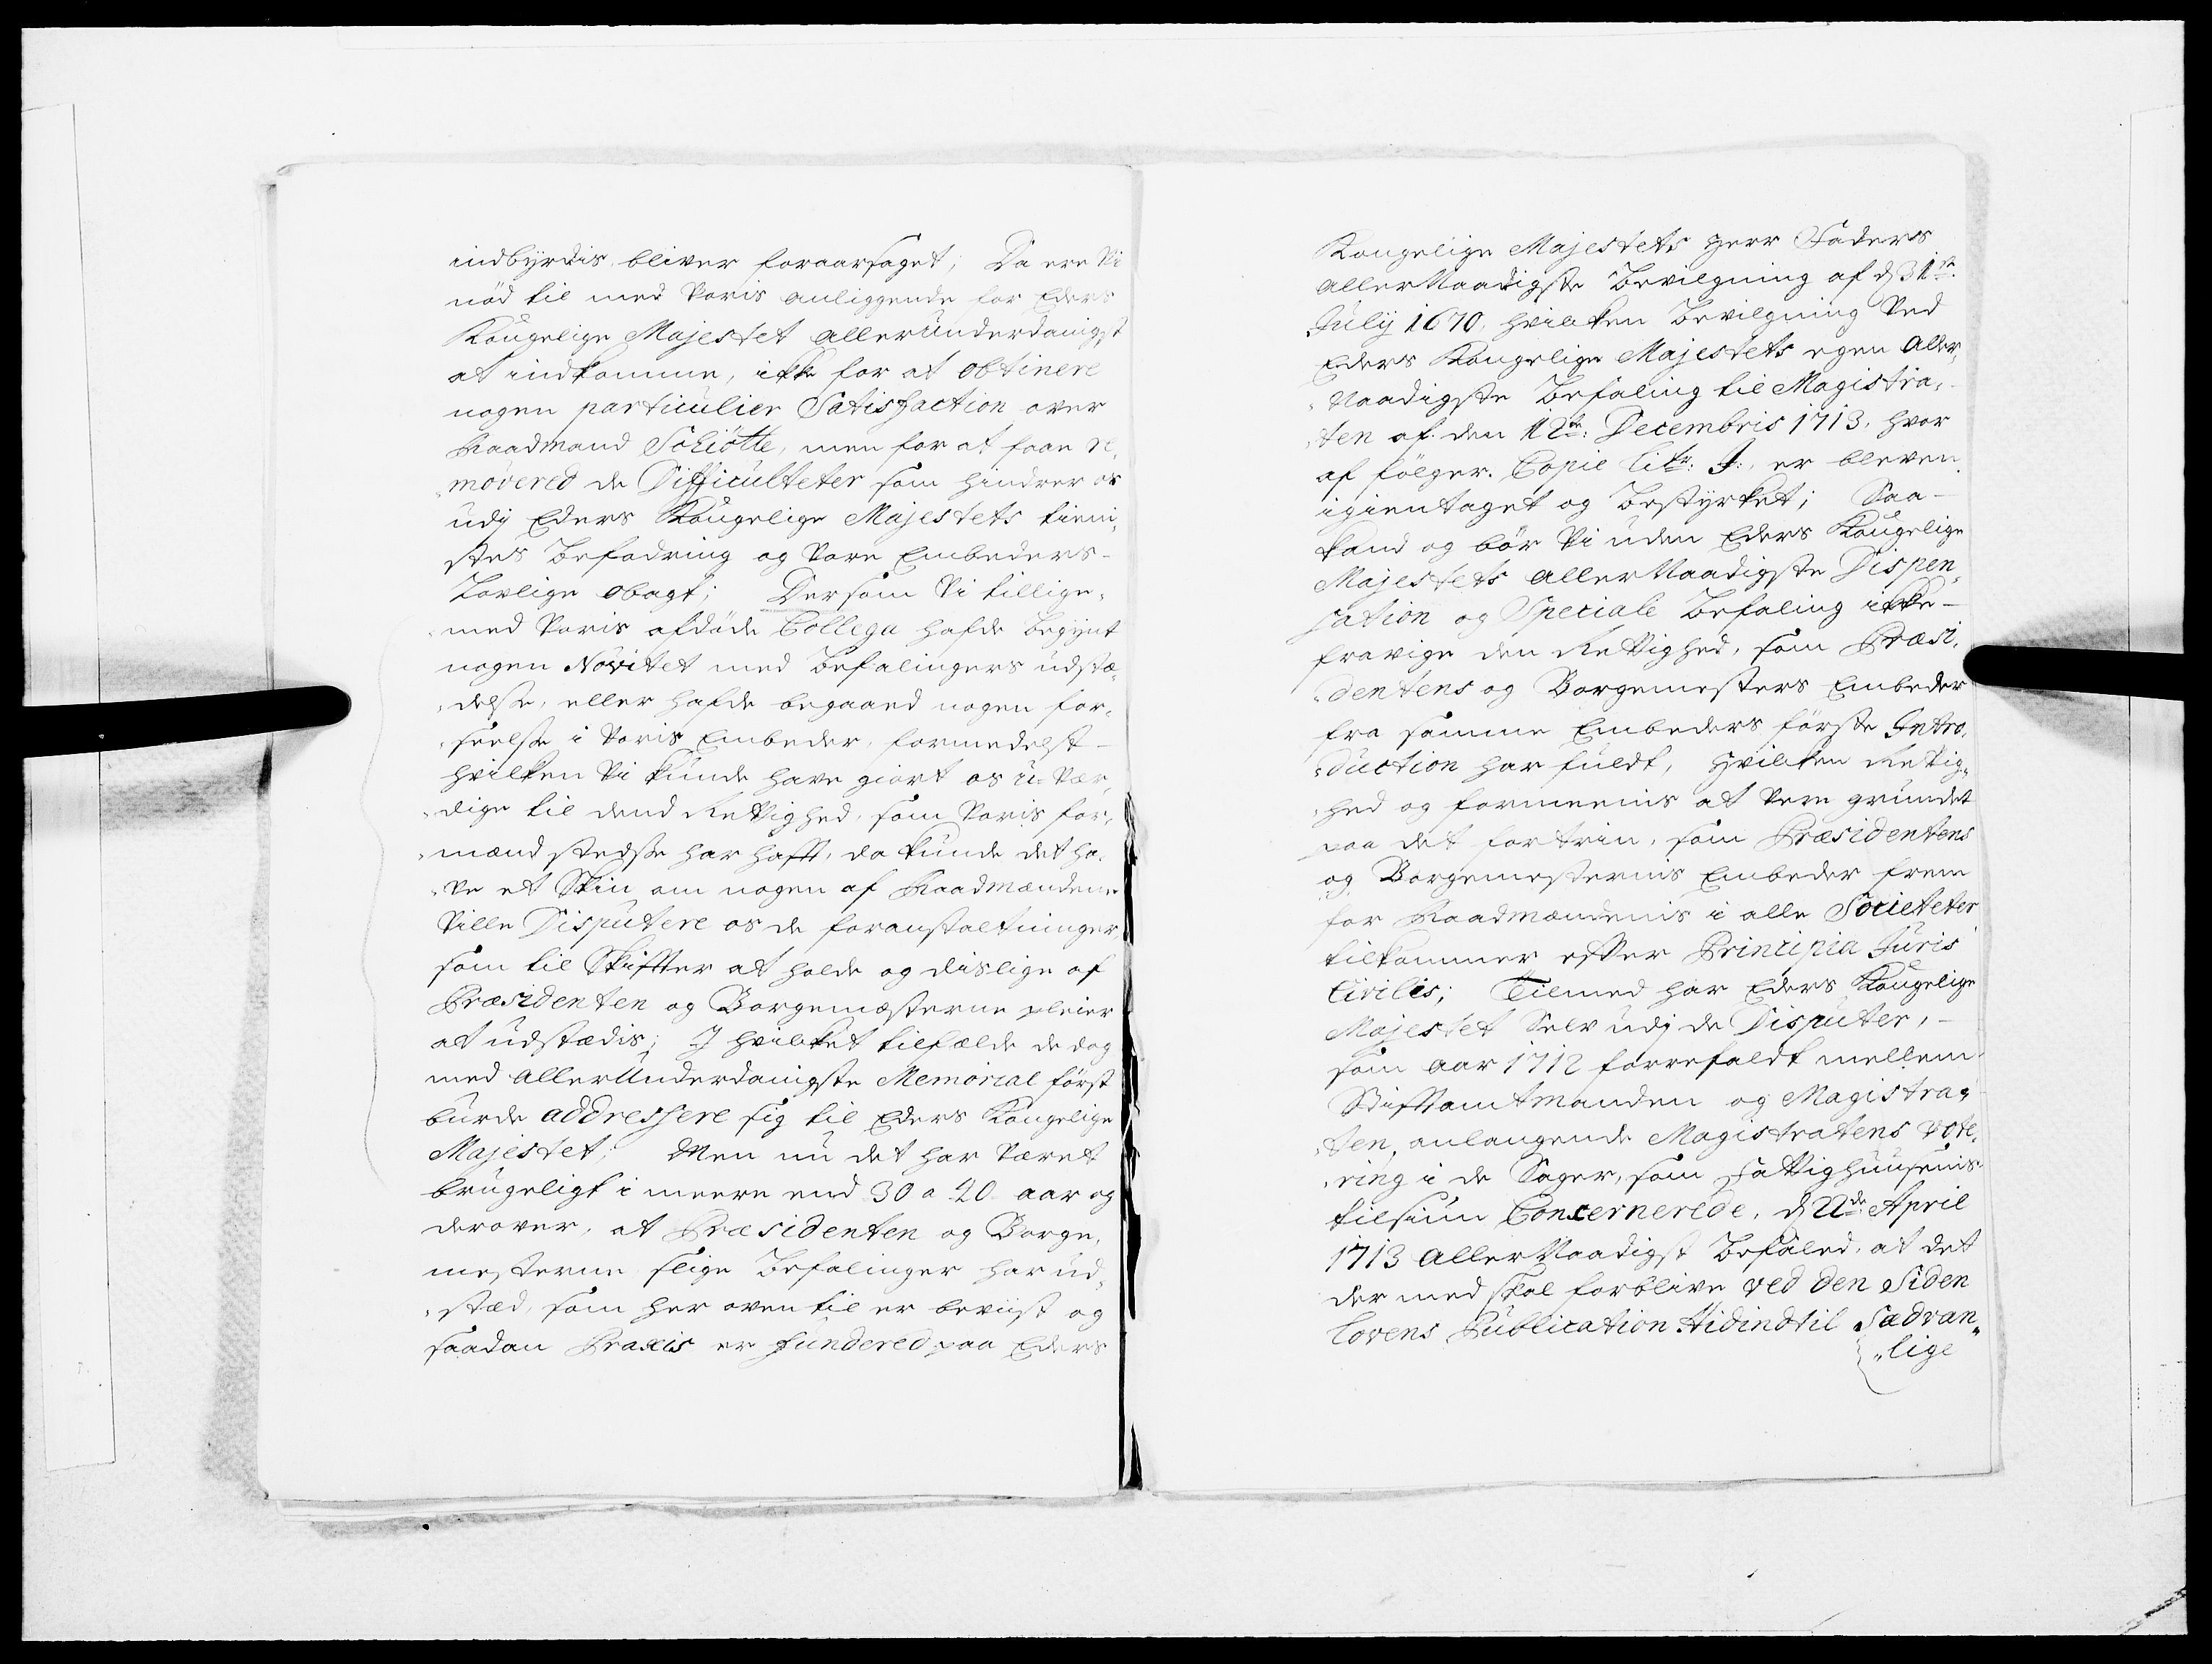 indbyrdis bliver foraarsaget; Da ere Vi
nöd til med Voris anliggende for Eders
Kongelige Majestet allerunderdanigst
at indkomme, ikke for at obtinere
nogen particulier Satisfaction over
Raadmand Schiötte, men for at faae re,
,movered de Difficulteter som hindrer os
udj Eders Kongelige Majestets tieni,
stes Befodring og Vore Embeders-
Lovlige obagt; Dersom Vi tillige,
,med Voris afdöde Collega hafde begynt
nogen Novitet med Befalingers udstæ,
,delse, eller hafde begaaed nogen for,
,seelse i Voris Embeder, formedelst-
hvilken Vi kunde have giort os u-Vær,
,dige til dend Rettighed, som Voris for,
,mænd stedse har hafft, da kunde det ha,
,ve et Skin om nogen af Raadmændene
Ville Disputere os de foranstaltninger,
som til Skiffter at holde og dislige af
Præsidenten og Borgemesterne pleier
at udstædis; I hvilket tilfælde de dog
med AllerUnderdanigste Memorial först
burde addressere sig til Eders Kongelige
Majestet; Men nu det har Været
brugeligt i meere end 30 a 40 aar og
derover, at Præsidenten og Borge,
mesterne slige Befalinger har ud,
,stæd, som her oven til er beviist og
saadan Praxis er funderet paa Eders
Kongelige Majestets Herr Faders
AllerNaadigste Bevilgning af d 31te
Julij 1670, hvilken Bevilgning Ved
Eders Kongelige Majestets egen Aller,
,Naadigste Befaling til Magistra,
,ten af den 12te: Decembris 1713, hvor
af fölger Copie litr: J:, er bleven
igientaget og Bestyrket; Saa-
kand og bör Vi uden Eders Kongelige
Majestets AllerNaadigste Dispen,
sation og Speciale Befaling ikke-
fravige den Rettighed, som Præsi,
,dentens og Borgemesters Embeder
fra samme Embeders förste Intro,
,duction har fuldt, Hvilken Rettig,
,hed og formeenis at Vere grundet
paa det fortrin, som Præsidentens
og Borgemesternis Embeder frem
for Raadmændenis i alle Societeter
tilkommer effter Principia Juris
Civilis; Tilmed har Eders Kongelige
Majestet Selv udj de Disputer,-
som aar 1712 forrefaldt mellem
Stifftamtmanden og Magistra,
,ten, anlangende Magistratens vote,
,ring i de Sager, som Fattighuusenis
tilsiun Concernerede, d 22de April
1713 AllerNaadigst Befaled, at det
der med skal forblive ved den Siden
lovens Publication hidindtil Sædvan,,
,,lige